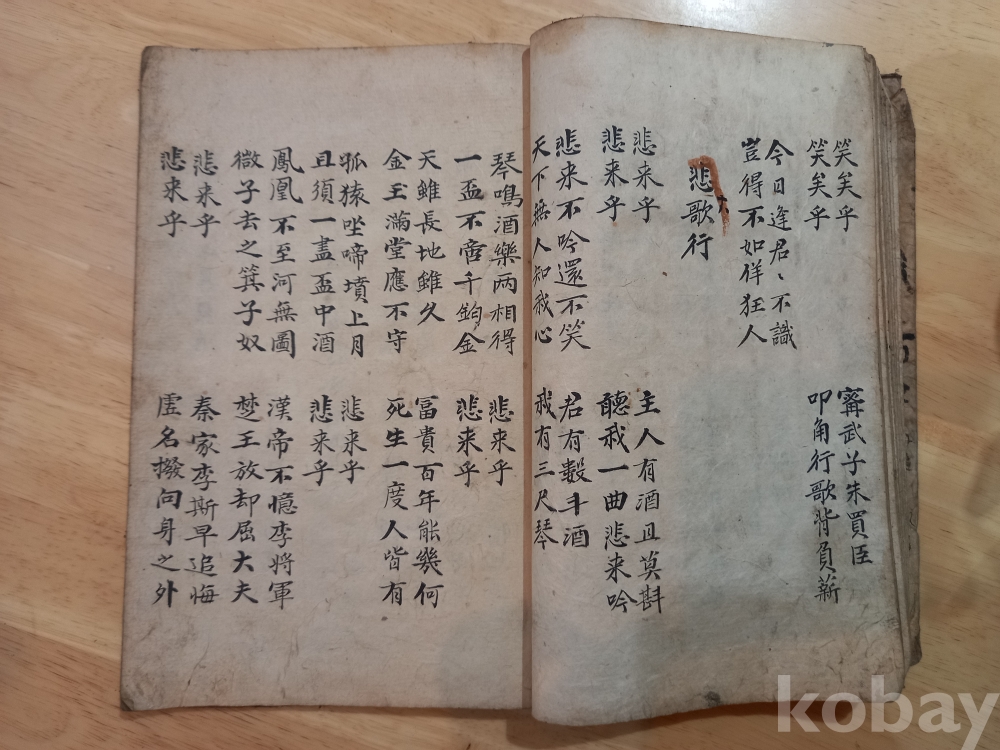 笑矣乎
笑矣乎
甯武子朱買臣
叩角行歌背負薪
今日逢君〻不識
豈得不如佯狂人
悲歌行
悲来乎
悲来乎
主人有酒且莫斟
聽我一曲悲来吟
悲来不吟還不笑
天下無人知我心
君有數斗酒
我有三尺琴
琴鳴酒樂两相得
一盃不啻千鈞金
悲来乎
悲来乎
天雖長地雖久
金玉滿堂應不守
富貴百年能幾何
死生一度人皆有
孤猿坐啼墳上月
且須一盡盃中酒
悲来乎
悲来乎
鳳凰不至河無圖
微子去之箕子奴
漢帝不憶李將軍
楚王放却屈大夫
悲来乎
悲来乎
秦家李斯早追悔
虛名撥向身之外
kobay